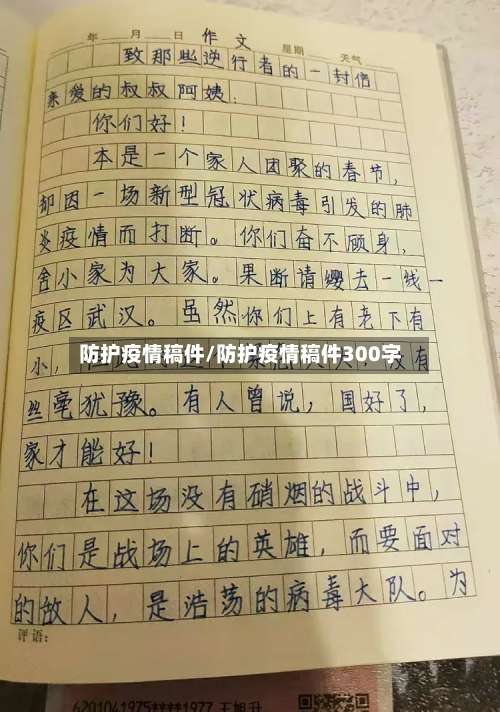 年 月 日 作文 星期 天气
致那些逆行者的一封信
亲爱的叔叔阿姨:
你们好!
本是一个家人团聚的春节,
却因一场新型冠状病毒引发的肺
炎疫情而打断。你们奋不顾身,
舍小家为大家。果断请缨去一线一
疫区武汉。虽然你们上有老下有
小,
防护疫情稿件/防护疫情稿件300字
有
丝毫犹豫。有人曾说,国好了,
家才能好!
在这场没有硝烟的战斗中,
你们是战场上的英雄,而要面对
的敌人,是浩荡的病毒大队。为
评语:
6201041975****1977 王旭升